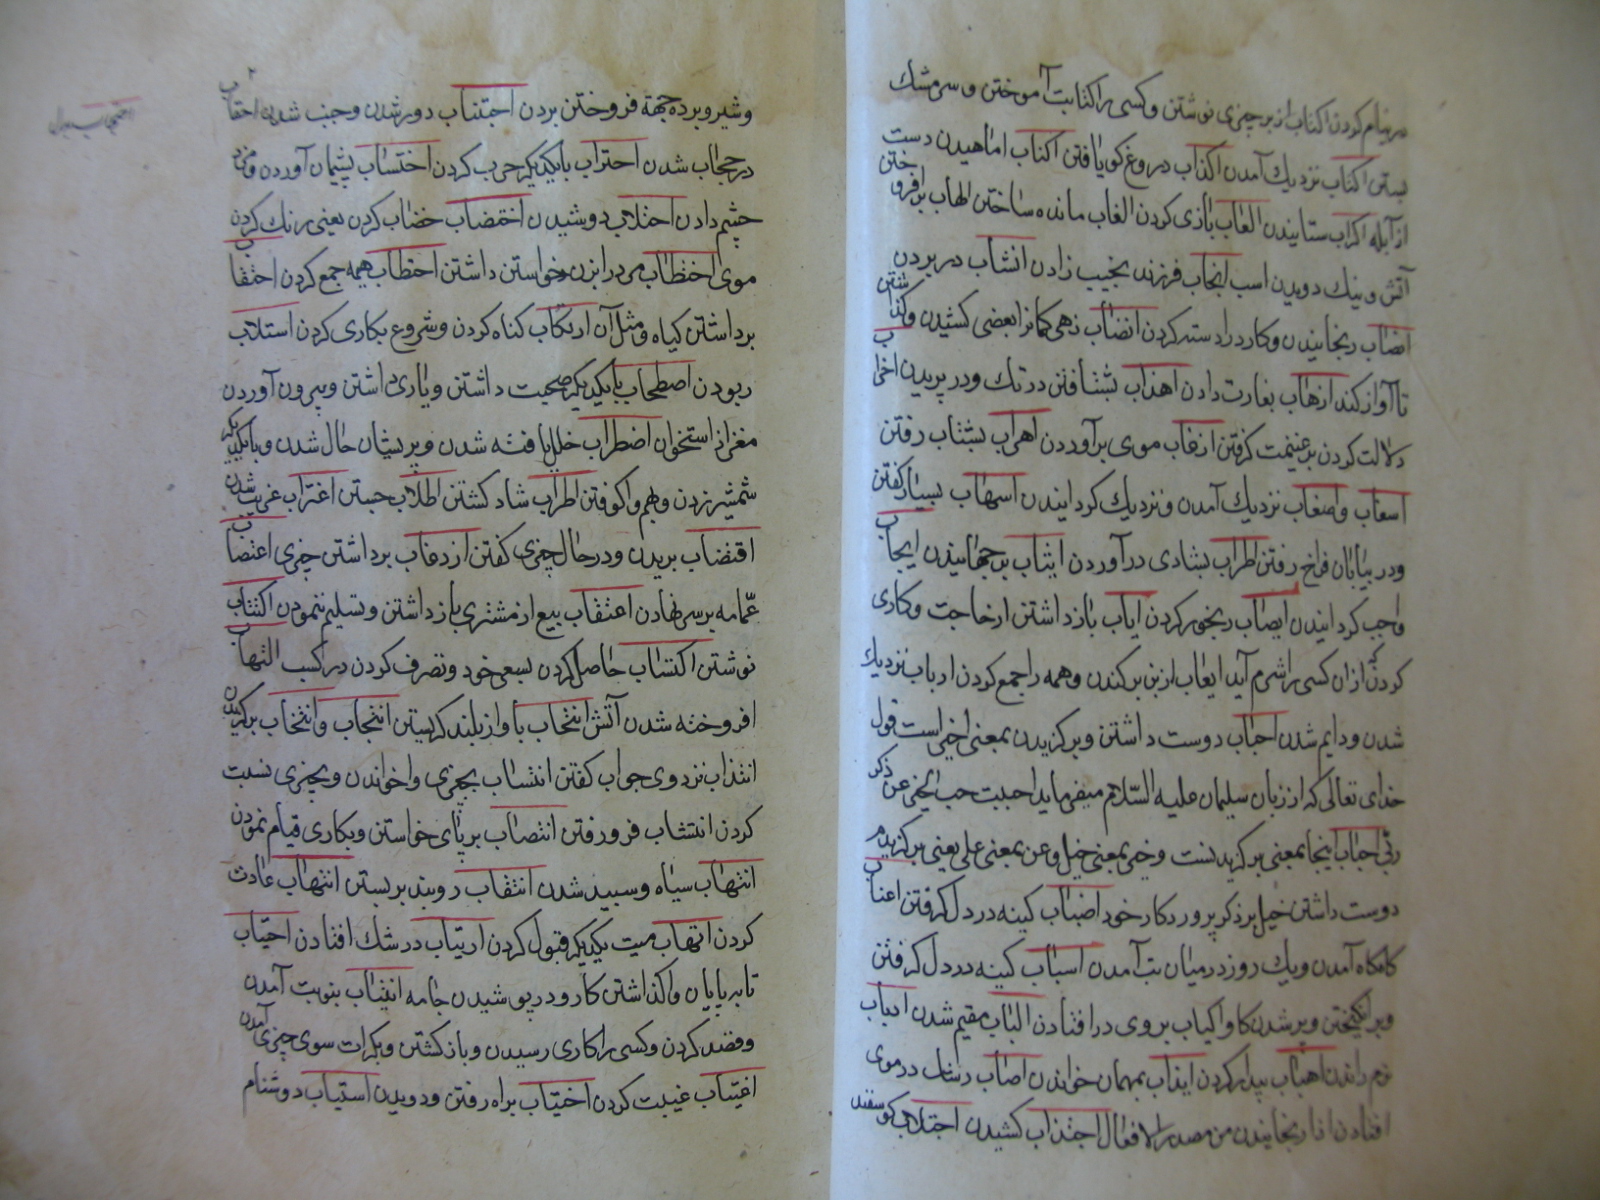 سرپیام کردن اکتاب از بر چیزی نوشتن و کسی را کتابت آموختن و سر مشک
بستن اکثاب نزدیک آمدن اکذاب دروغ کو یافتن اکناب اماهیدن دست
از آبله اکراب ستابیدن العاب بازی کردن الغاب مانده ساختن الهاب برافروختن
آتش و نیک دویدن اسب انجاب فرزند نجیب زادن انشاب در بردن
انصاب رنجانیدن و کارد را دسته کردن انضاب زهی کمانرا بعضی کشیدن و کذاشتن
تا آواز کند ازهاب بغارت دادن اهذاب بشتافتن در تک و در پریدن اخراب
دلالت کردن بر غنیمت کرفتن ازغاب موی برآوردن اهراب بشتاب رفتن
اسقاب واصقاب نزدیک آمدن و نزدیک کردانیدن اسهاب بسیار کفتن
و در بیابان فراخ رفتن اطراب بشادی درآوردن ایثاب برجهانیدن ایجاب
واجب کردانیدن ایصاب رنجور کردن ایاب باز داشتن از حاجت و کاری
کردن که از ان کسی را شرم آید ایعاب از بن برکندن و همه را جمع کردن ارباب نزدیک
شدن و دایم شدن احباب دوست داشتن و برکزیدن بمعنی اخیر است قول
خدای تعالی که از زبان سلیمان علیه السلام میفرماید احببت حب الخیر عن ذکر
ربی احباب اینجا بمعنی برکزیدنست و خیر بمعنی خیل و عن بمعنی علی یعنی برکزیدم
دوست داشتن خیل بر ذکر پروردکار خود اضباب کینه در دل کرفتن اغباب
کاه کاه آمدن و یک روز در میان تب آمدن اسباب کینه در دل کرفتن
و برانکیختن و پر شدن کاو اکباب بروی در افتادن الباب مقیم شدن ادباب
نرم راندن اهباب بیدار کردن ایداب بمهمان خواندن اصاب رشک در موی
افتادن اذا رنجانیدن من مصدر الافعال اجتذاب کشیدن اجتلاب کوسفند
و شیر و برده جهة فروختن بردن اجتناب دور شدن و جنب شدن احتجاب
در حجاب شدن احتراب بایکدیکر حرب کردن احتساب پشیمان آورده و مزد
چشم دادن احتلاب دوشیدن اختضاب خضاب کردن یعنی رنک کردن
موی اختطاب می در ا بزن خواستن داشتن احتطاب هیمه جمع کردن احتقاب
برداشتن کیاه و مثل آن ارتکاب کناه کردن و شروع بکاری کردن استلاب
ربودن اصطحاب بایکدیکر صحبت داشتن و یاری داشتن و بیرون آوردن
مغز از استخوان اضطراب خلل یافته شدن و پریشان حال شدن و بایکدیکر
شمشیر زدن و بهم واکوفتن اطراب شاد کشتن اطلاب جستن اغتراب غریب شدن
اقتضاب بریدن و در حال چیزی کفتن ازدعاب برداشتن چیزی اعتصاب
عمامه بر سر نهادن اعتقاب بیع از مشتری باز داشتن و تسلیم ننمودن اکتتاب
نوشتن اکتساب حاصل کردن بسعی خود و تصرف کردن در کسب التهاب
افروخته شدن آتش انتحاب باواز بلند کریستن انتجاب و انتخاب برکزیدن
انتداب نزد وی جواب کفتن انتساب بچیزی واخواندن و بچیزی نسبت
کردن انتشاب فرو رفتن انتصاب بر پای خواستن و بکاری قیام نمودن
انتهاب سیاه و سپید شدن انتقاب روبند بربستن انتهاب غارت
کردن اتهاب میت یکدیکر قبول کردن ارتیاب در شک افتادن احتیاب
تا به پایان واکذاشتن کار و در پوشیدن جامه انتیاب بنوبت آمدن
و قصد کردن و کسی را کاری رسیدن و باز کشتن و بکرات سوی چیزی آمدن
اغتیاب غیبت کردن اختیاب براه رفتن و دویدن استیاب دوشنام